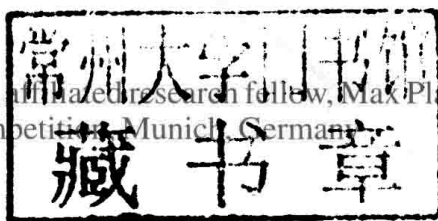 常州大学图书馆
affiliated research fellow, Max Pla
petition, Munich, Germany
藏书章